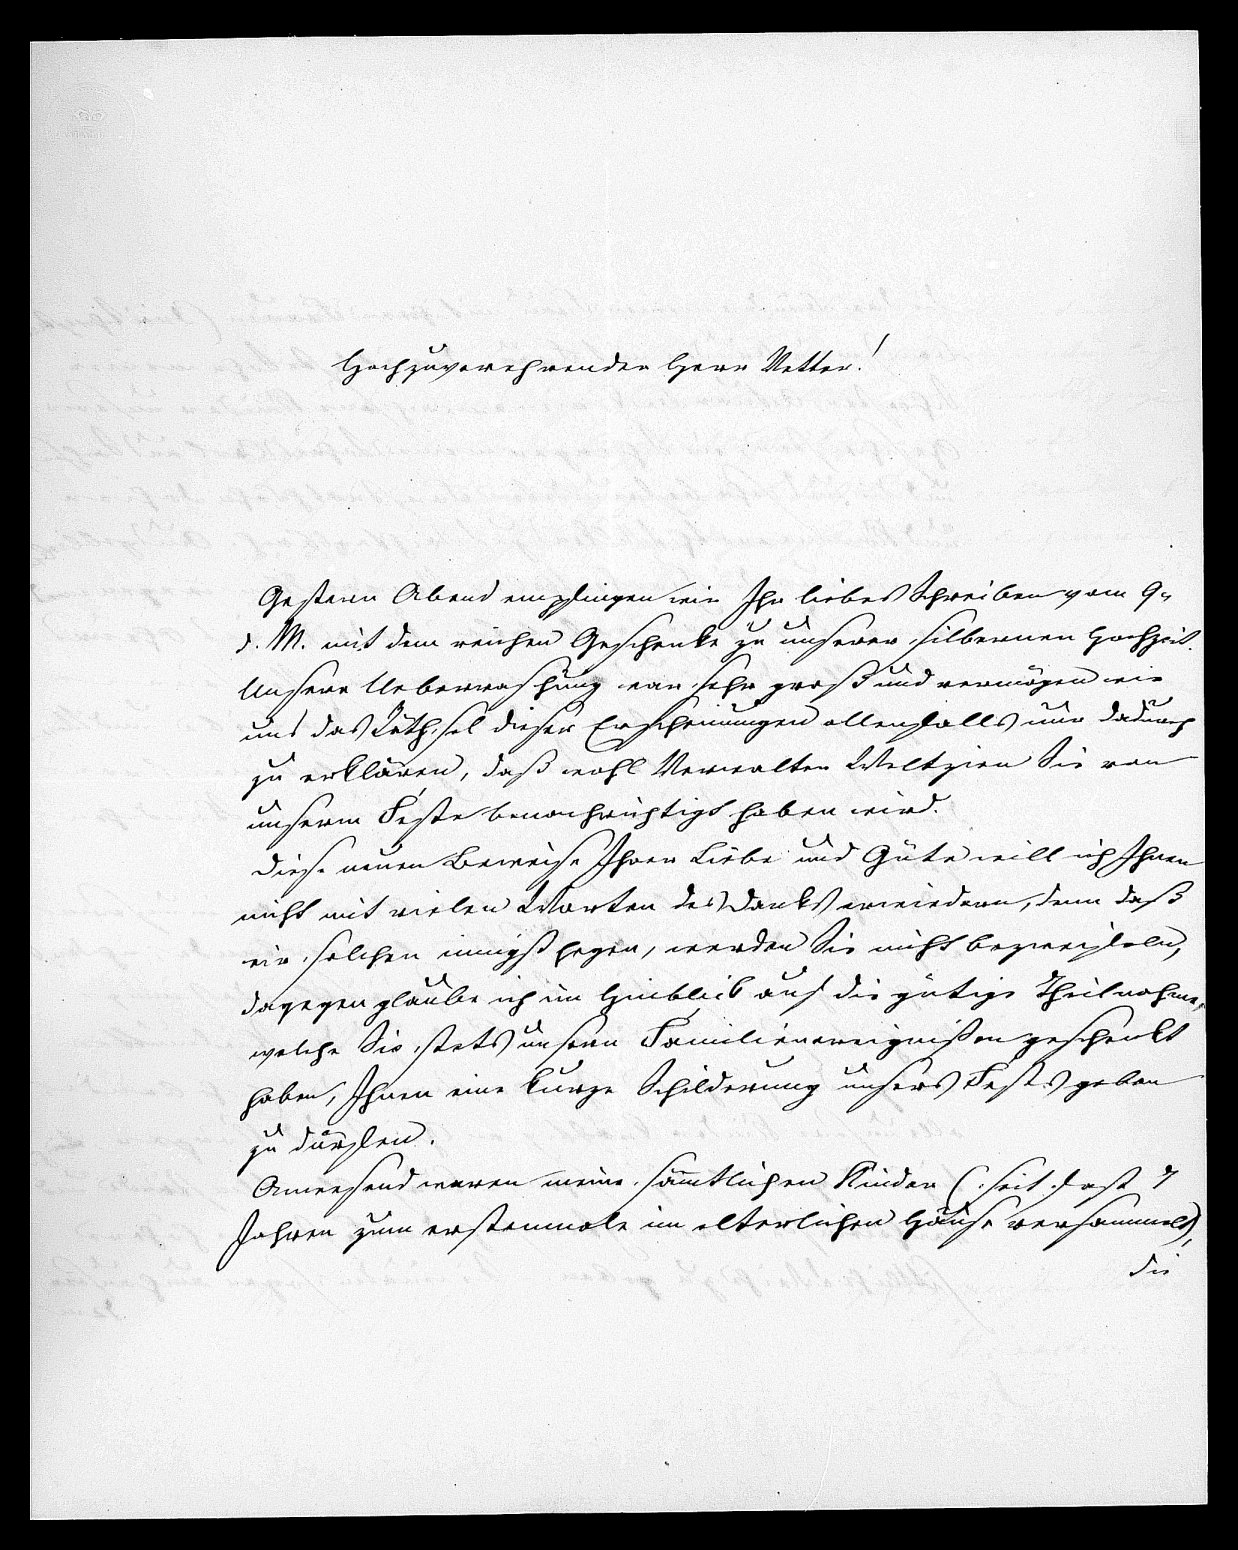 Hochzuverehrender Herr Vetter!
Gestern Abend empfingen wir Ihr liebes Schreiben vom 9n
d. M. mit dem reichen Geschenke zu unserer silbernen Hochzeit.
Unsere Ueberraschung war sehr groß und vermögen wir
uns das Räthsel dieser Erscheinungen allenfalls nur dadurch
zu erklären, daß wohl Verwalter Weltzien Sie von
unserm Feste benachrichtigt haben wird.
Diese neuen Beweise Ihrer Liebe und Güte will ich Ihnen
nicht mit vielen Worten des Danks erwiedern, denn daß
wir solchen innigst hegen, werden Sie nicht bezweifeln,
dagegen glaube ich im Hinblick auf die gütige Theilnahme,
welche Sie stets unsern Familienereignißen geschenkt
haben, Ihnen eine kurze Schilderung unsers Festes geben
zu dürfen.
Anwesend waren meine sämtlichen Kinder (seit fast 7
Jahren zum erstenmale im elterlichen Hause versammelt),
die